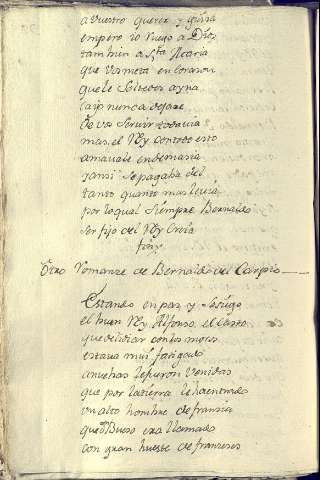 a vuestro querer y guisa
empero io ruego a Dios
tambien a Sta Maria
que vos meta en corazon
que le soltedes ayna
ca io nunca dejare
de vos servir todavia
mas el Rey con todo esto
amavale en demasia
y ansi se pagaba del
tanto quanto mas le via
por lo qual siempre Bernaldo
ser fijo del Rey creia
fin
Otro Romanze de Bernaldo del Carpio
Estando en paz y sosiego
el buen Rey Alfonso el casto
que de lidiar con los moros
estava mui fatigado
a nuebas le fueron venidas
que por la tierra le ha entrado
un alto hombre de francia
que Dn Bueso era llamado
con gran hueste de franceses